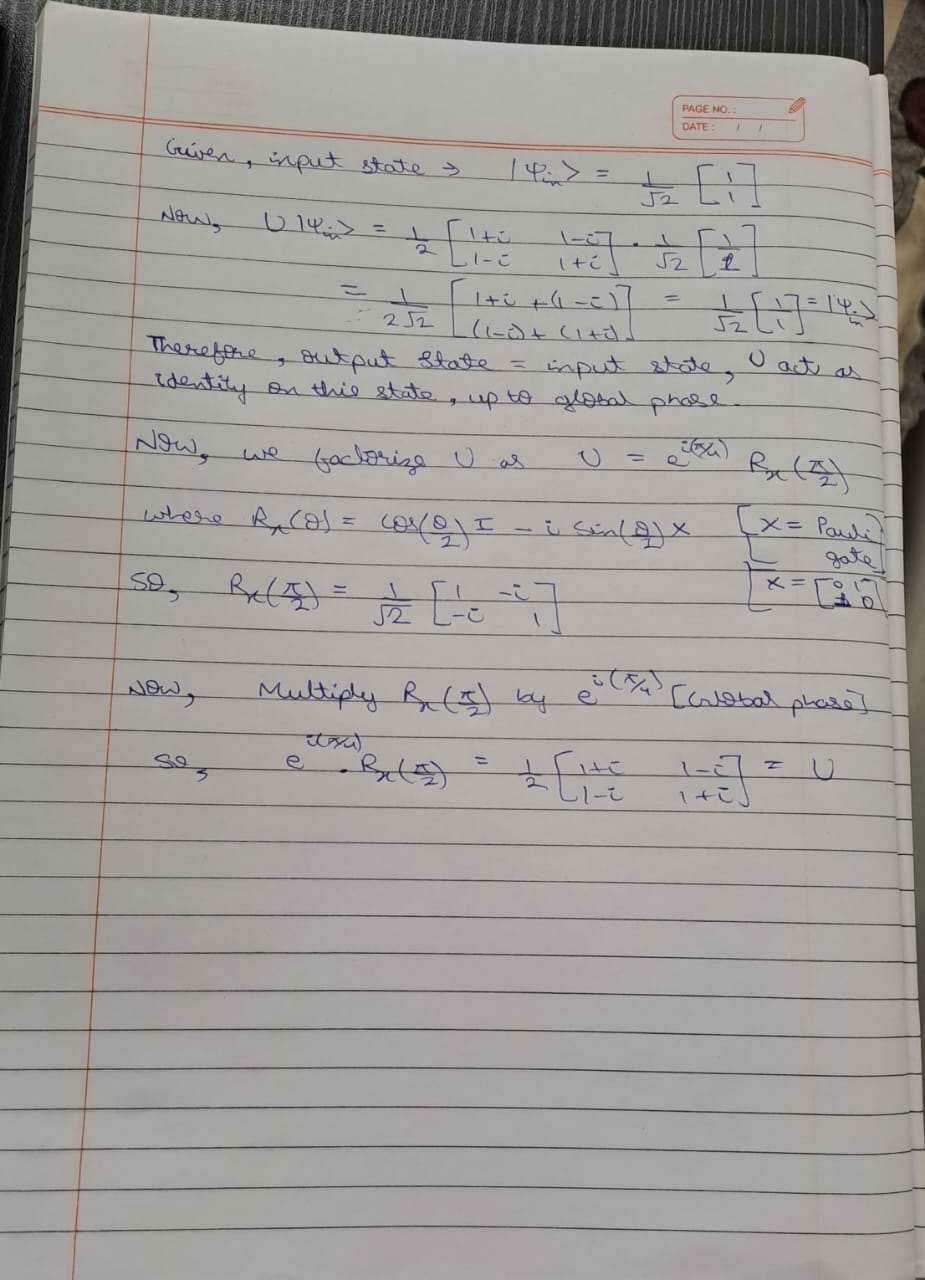 PAGE NO. :
DATE : / /
Given, input state → |Ψin> = 1/√2 [1 1]
Now, U|Ψin> = 1/2 [1+i 1-i 1-i 1+i] . 1/√2 [1 1]
= 1/2√2 [1+i +(1-i) (1-i)+(1+i)] = 1/√2 [1 1] = |Ψin>
Therefore, output state = input state, U act as
identity on this state, up to global phase.
Now, we factorize U as U = e^i(π/4) Rx(π/2)
where Rx(θ) = cos(θ/2) I - i sin(θ/2) X [X = Pauli gate]
so, Rx(π/2) = 1/√2 [1 -i -i 1] [X = [0 1 1 0]]
Now, Multiply Rx(π/2) by e^i(π/4) [Global phase]
so, e^i(π/4) . Rx(π/2) = 1/2 [1+i 1-i 1-i 1+i] = U